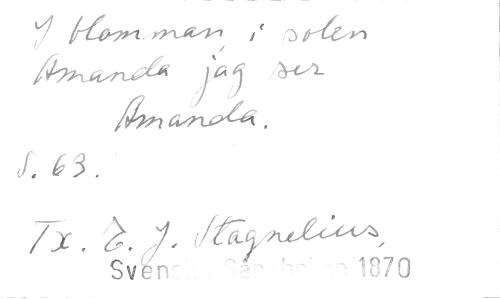 I blomman, i solen
Amanda jag ser
Amanda.
S. 63.
Tx. E. J. Stagnelius,
Svenska Sångboken 1870